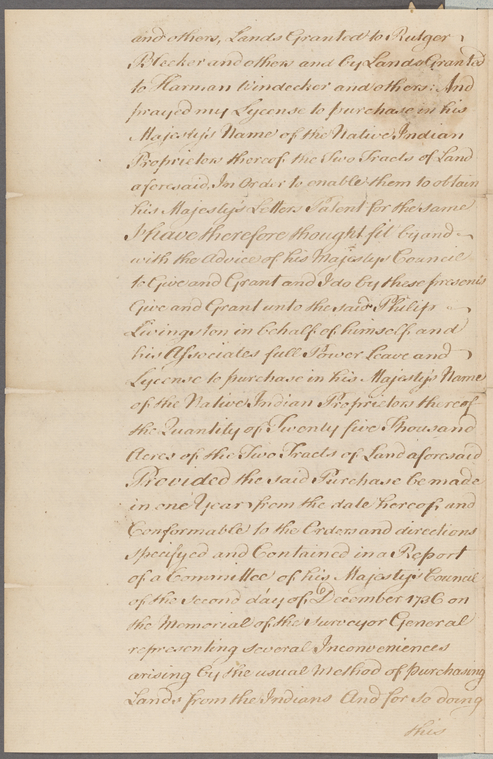 and others, Lands Granted to Rutger
Bleeker and others and by Lands Granted
to Harman Windecker and others: And
prayed my Lycense to purchase in his
Majestys Name of the Native Indian
Proprietors thereof the Two Tracts of Land
aforesaid In Order to enable them to obtain
his Majesty's Letters Patent for the same
I have therefore thought fit by and
with the Advice of his Majestys Council
to Give and Grant and I do by these presents
Give and Grant unto the said Philip
Livingston in behalf of himself and
his Associates full Power Leave and
Lycense to purchase in his Majesty's Name
of the Native Indian Proprietors thereof
the Quantity of Twenty five Thousand
Acres of the Two Tracts of Land aforesaid
Provided the said Purchase be made
in one Year from the date hereof, and
Conformable to the Orders and directions
specifyed and Contained in a Report
of a Committee of his Majesty's Council
of the Second day of December 1736 on
the Memorial of the Surveyor General
representing several Inconveniences
arising by the usual Method of purchasing
Lands from the Indians And for so doing
this